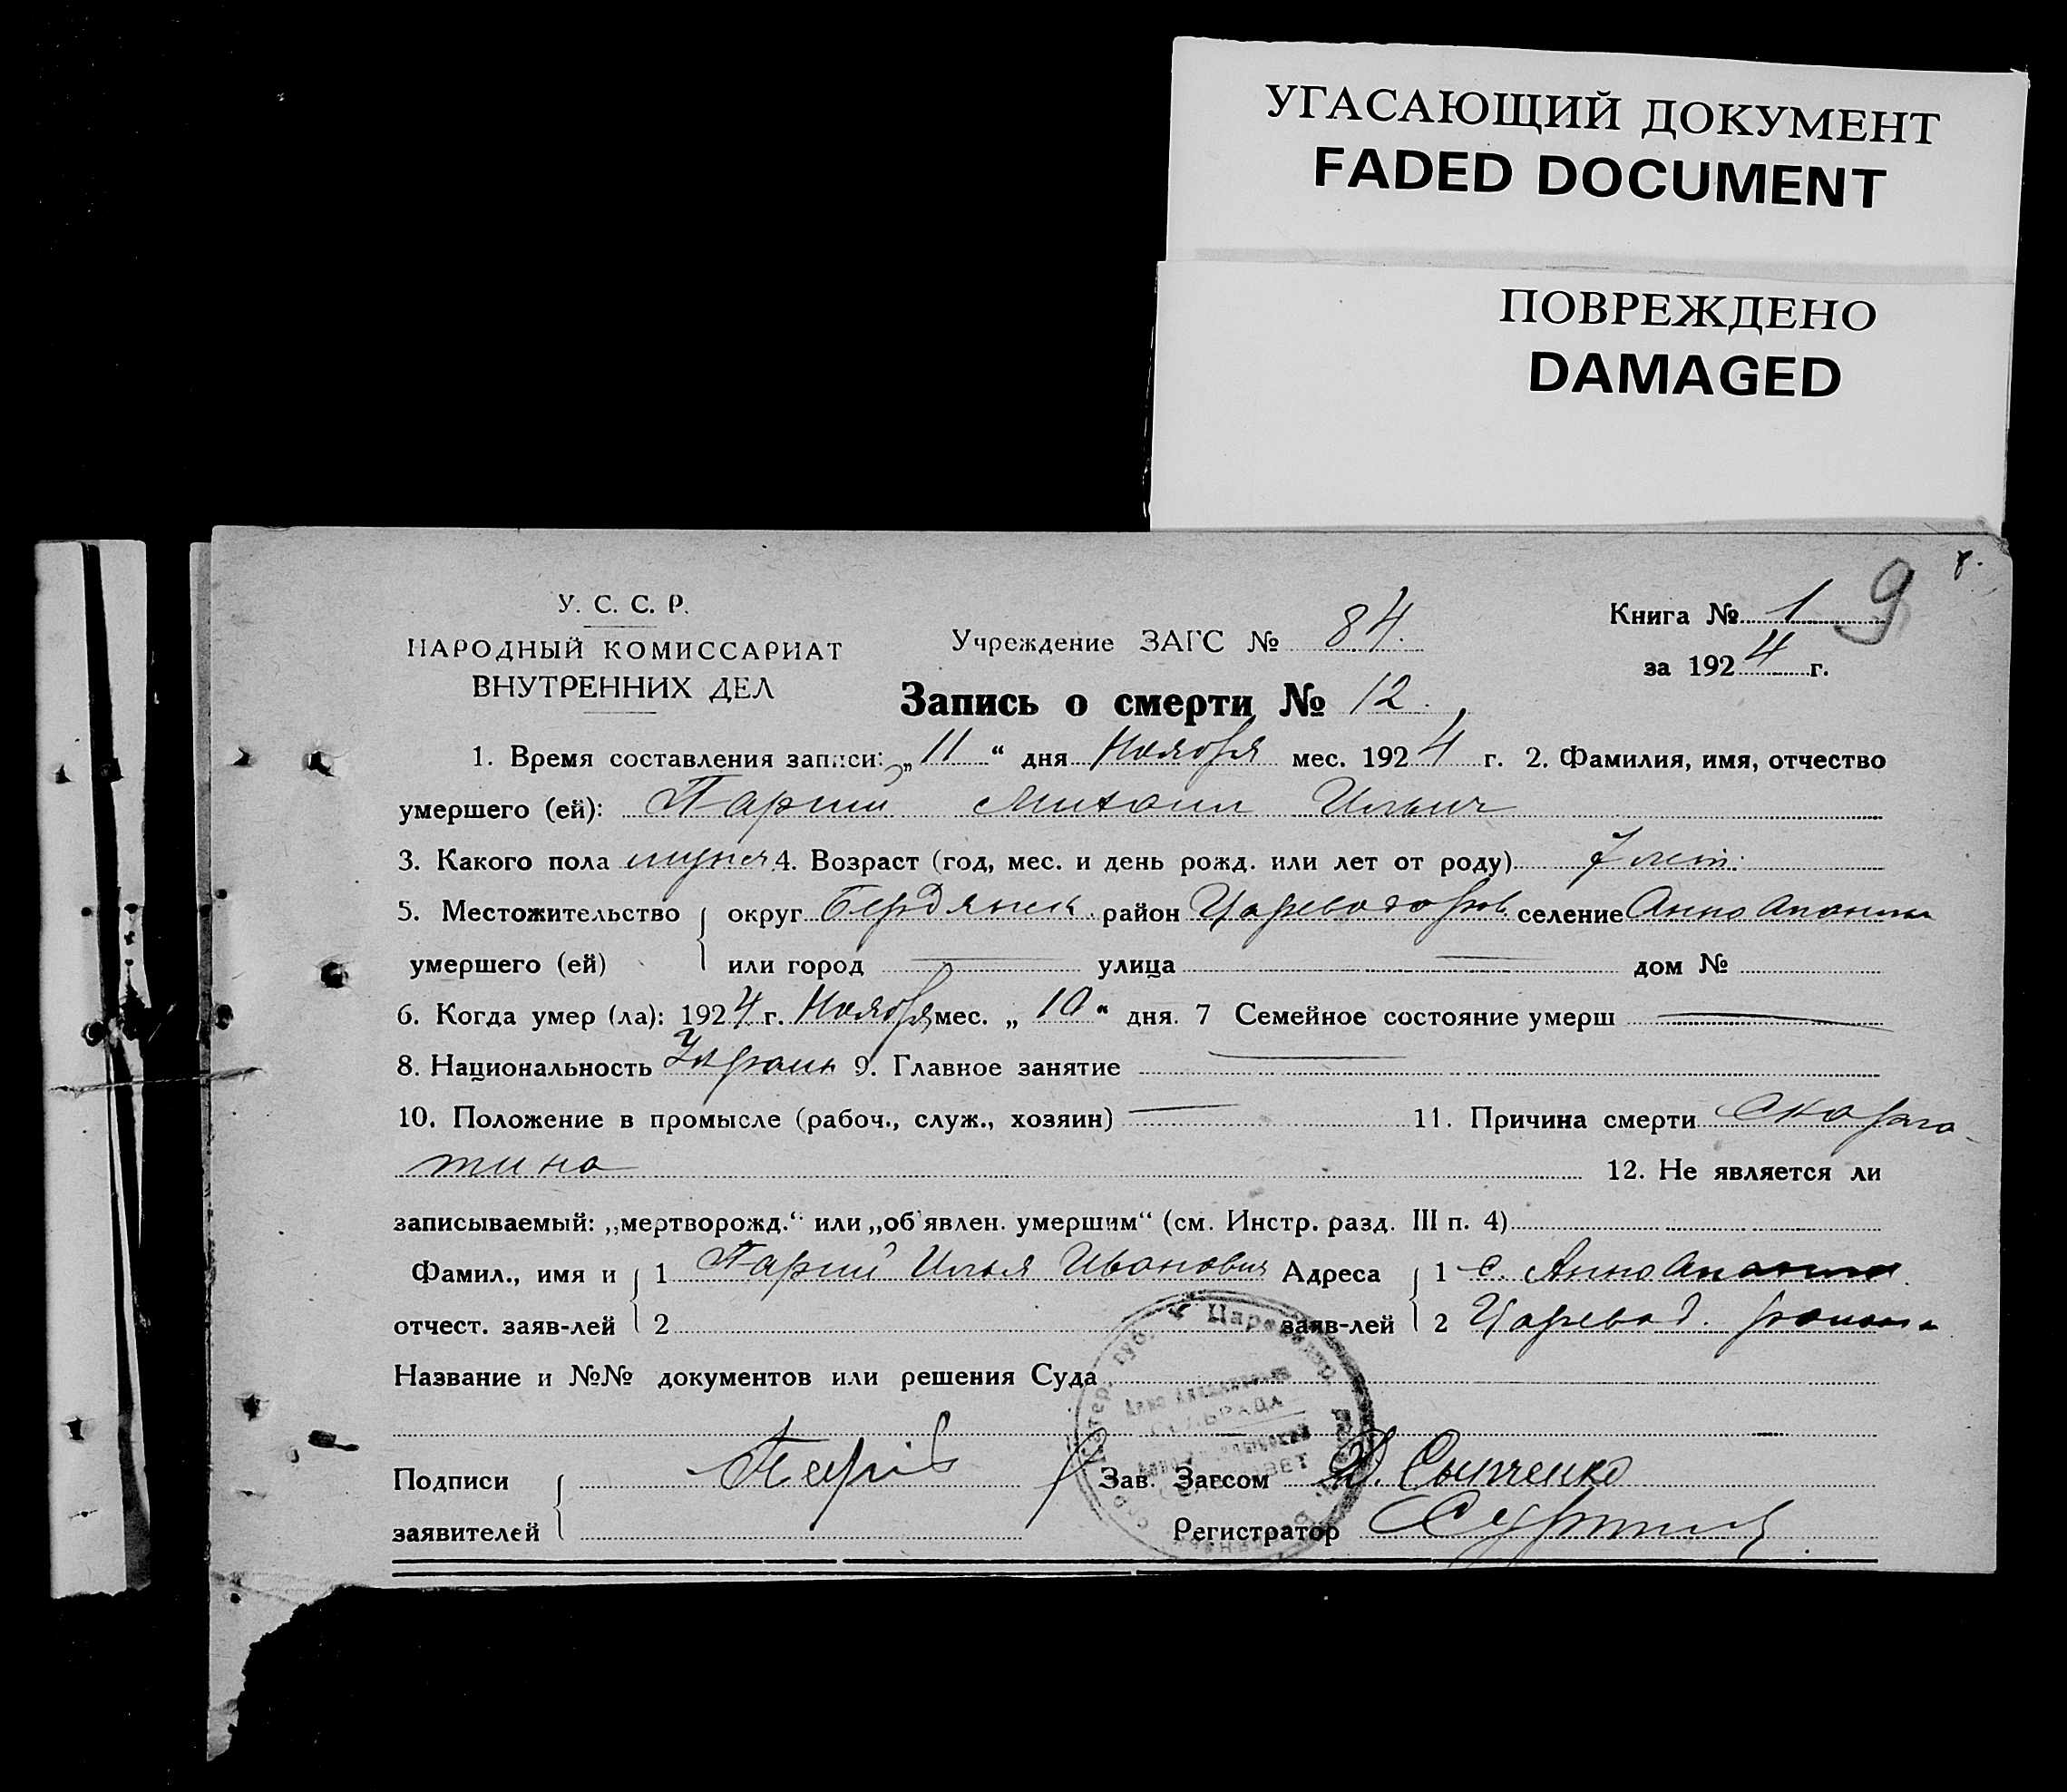 УГАСАЮЩИЙ ДОКУМЕНТ
FADED DOCUMENT
ПОВРЕЖДЕНО
DAMAGED
9
У. С. С. Р.
НАРОДНЫЙ КОМИССАРИАТ
ВНУТРЕННИХ ДЕЛ
Учреждение ЗАГС № 84.
Книга № 1
за 1924 г.
Запись о смерти № 12.
1. Время составления записи: „11“ дня Ноября мес. 1924 г. 2. Фамилия, имя, отчество
умершего (ей): Парий Михаил Ильич
3. Какого пола мужск 4. Возраст (год, мес. и день рожд. или лет от роду) 7 лет.
5. Местожительство округ Бердянск. район Царевода­ров. селение Анно
умершего (ей) или город — улица — дом №
6. Когда умер (ла): 1924 г. Ноября мес. „10“ дня. 7 Семейное состояние умерш —
8. Национальность Украин 9. Главное занятие —
10. Положение в промысле (рабоч., служ., хозяин) — 11. Причина смерти Скарла-
тина 12. Не является ли
записываемый: „мертворожд.“ или „об'явлен. умершим“ (см. Инстр. разд. III п. 4)
Фамил., имя и 1 Парий Илья Иванович Адреса 1 с. Анно
отчест. заяв-лей 2 заяв-лей 2 Царевод. района
Название и №№ документов или решения Суда
СЕЛЬРАДА
Подписи Парій Зав. Загсом
заявителей Регистратор